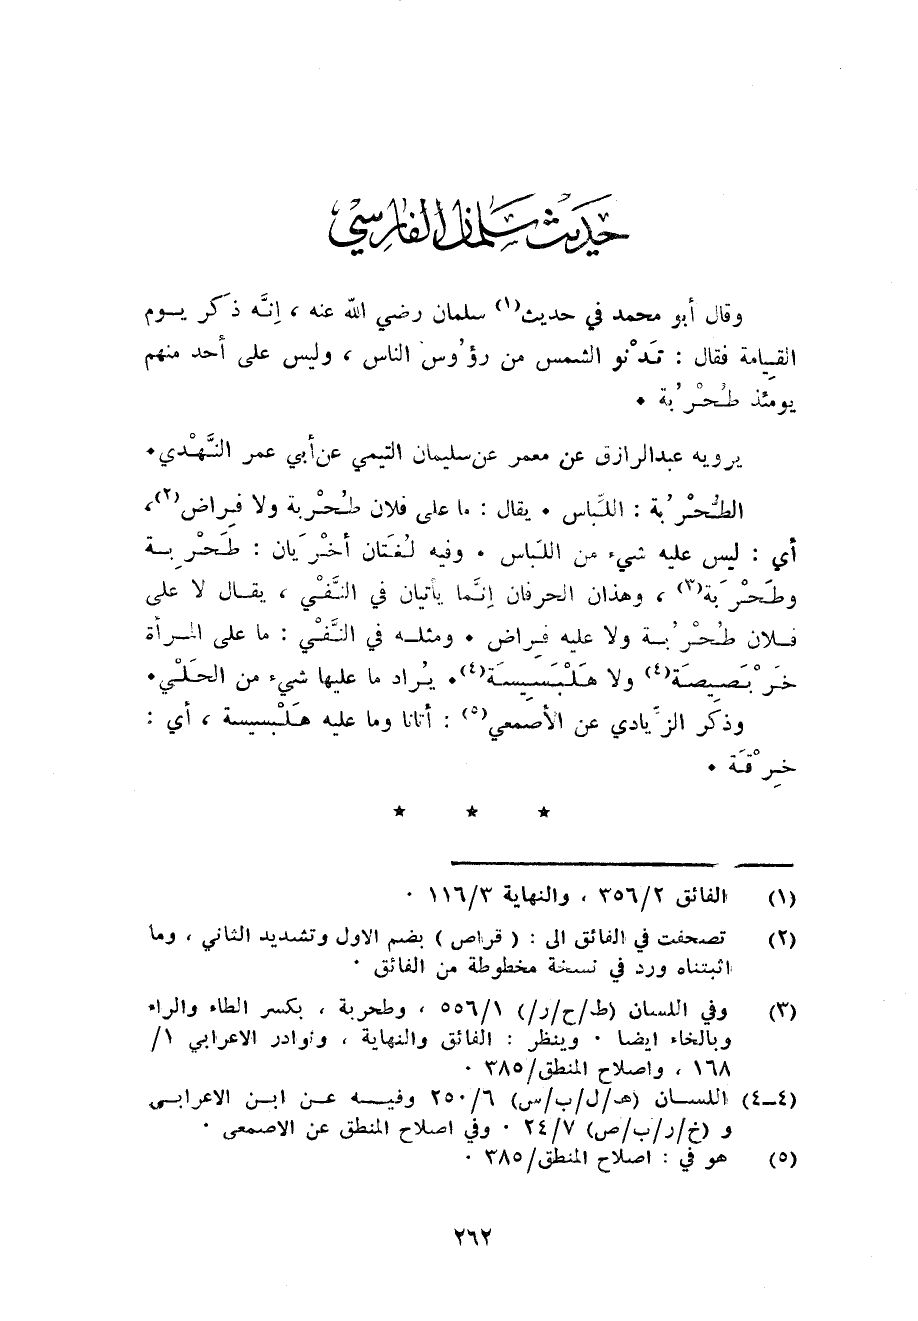 حديث سلمان الفارسي
وقال أبو محمد في حديث(١) سلمان رضي الله عنه ، إنَّه ذَكَر يـوم
القيامة فقال : تَدْنو الشمس من رؤُوس الناس ، وليس على أحد منهم
يومئذ طُحْرُبة •
يرويه عبدالرازق عن معمر عن سليمان التيمي عن أبي عمر النَّهْدي •
الطُّحْرُبة : اللِّباس • يقال : ما على فلان طُحْربة ولا فِراض(٢) ،
أي : ليس عليه شيء من اللباس • وفيه لُغَتان أخْرَيان : طَحْرِبـة
وطَحْرَبة(٣) ، وهذان الحرفان إنَّما يأتيان في النَّفْي ، يقـال لا على
فـلان طُحْرُبـة ولا عليه فِراض • ومثلـه في النَّفْي : ما على المرأة
خَرْبَصِيصَة(٤) ولا هَلْبَسِيسَة(٤) • يُراد ما عليها شيء من الحَلْي •
وذكر الزِّيادي عن الأصمعي(٥) : أتانا وما عليه هَلْبسيسة ، أي :
خِرْقَة •
★ ★ ★
(١) الفائق ٣٥٦/٢ ، والنهاية ١١٦/٣ ٠
(٢) تصحفت في الفائق الى : ( قراص ) بضم الاول وتشديد الثاني ، وما
اثبتناه ورد في نسخة مخطوطة من الفائق ٠
(٣) وفي اللسان (ط/ح/ر/) ٥٥٦/١ ، وطحربة ، بكسر الطاء والراء
وبالخاء ايضا ٠ وينظر : الفائق والنهاية ، ونوادر الاعرابي ١/
١٦٨ ، واصلاح المنطق/٣٨٥ ٠
(٤ــ٤) اللسـان (هـ/ل/ب/س) ٢٥٠/٦ وفيـه عـن ابـن الاعرابـي
و (خ/ر/ب/ص) ٢٤/٧ ٠ وفي اصلاح المنطق عن الاصمعى ٠
(٥) هو في : اصلاح المنطق/٣٨٥ ٠
٢٦٢